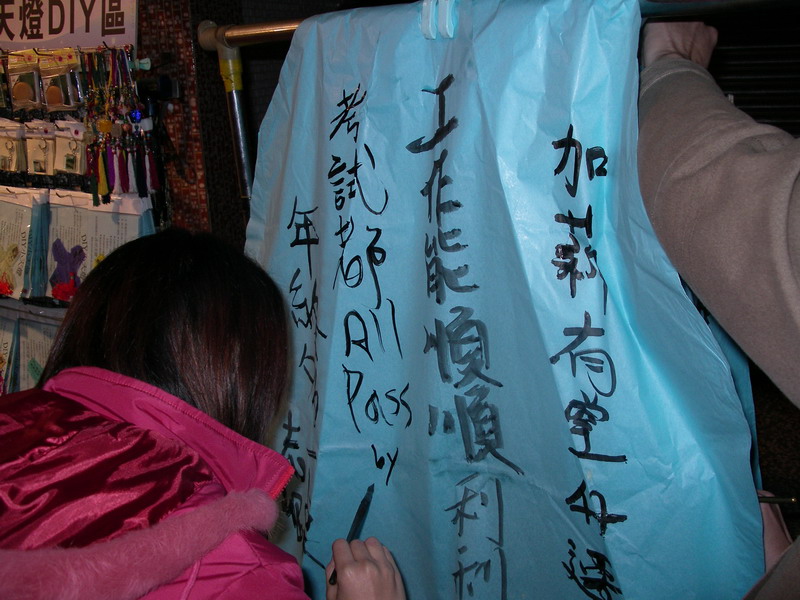 天燈DIY區
加薪有望升遷
工作能順順利利
考試都All Pass by
年